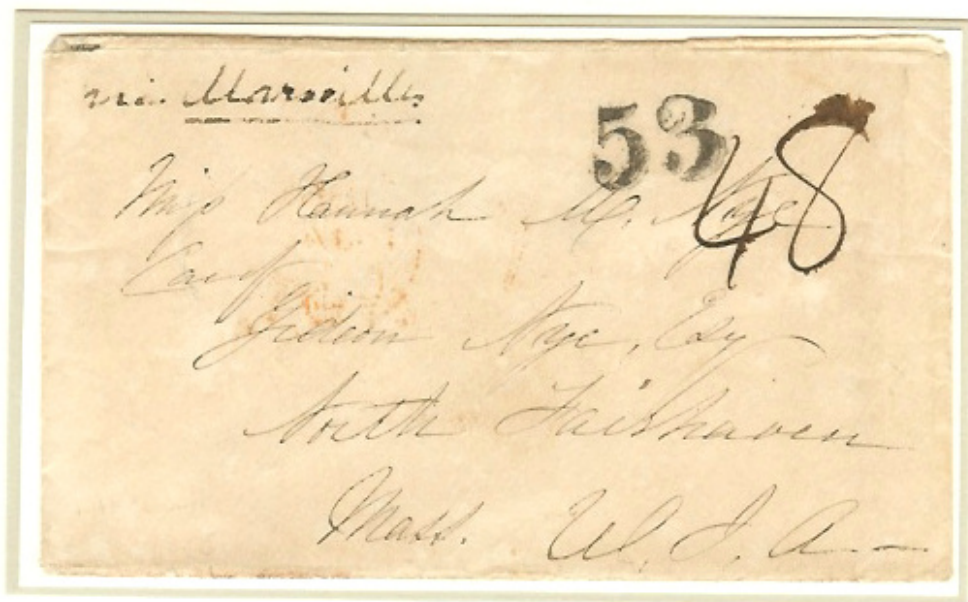 via Marseilles
53
48
Miss Hannah M. Nye
Care of
Gideon Nye, Esq
North Fairhaven
Mass. U. S. A.